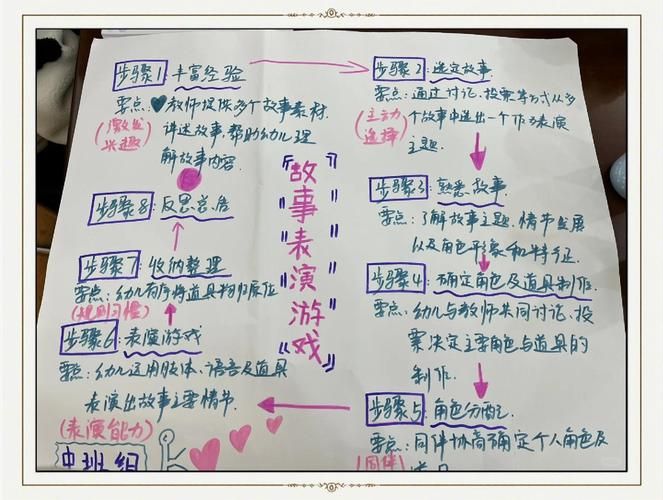 步骤1：丰富经验
要点：教师提供多个故事素材.
(激发兴趣)
讲述故事,帮助幼儿理
解故事内容.
步骤2：选定故事.
要点：通过讨论、投票等方式从多
(主动选择)
个故事中选出一个作为表演
主题.
步骤3：熟悉故事.
要点：了解故事主题、情节发展
以及角色形象和特征.
步骤4：确定角色及道具制作.
要点：幼儿与教师共同讨论、投
票决定主要角色与道具的
制作.
步骤5：角色分配.
要点：同伴协商确定个人角色及
(同伴
步骤6：表演游戏
要点：幼儿运用肢体、语言及道具
表演出故事主要情节.
(表演能力)
步骤7：收纳整理
要点：幼儿有序将道具物归原位
(规则习惯)
步骤8：反思总结
故事表演游戏
中班组